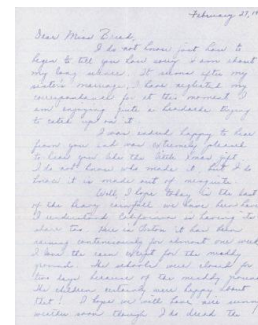 February 27, 19
Dear Miss Breed,
I do not know just how to
begin to tell you how sorry I am about
my long silence. It seems after my
sister's marriage, I have neglected my
correspondence for at this moment I
am enjoying quite a headache trying
to catch up on it.
I was indeed happy to hear
from you and was extremely pleased
to hear you like the little Xmas gift.
I do not know who made it, but I do
know it is made out of mesquite.
Well, I hope today is the last
of the heavy rainfall we have been having.
I understand California is having its
share too. Here in Poston it has been
raining continuously for almost one week.
I know the rain except for the muddy
grounds. The schools were closed for
two days because of the muddy ground.
The children certainly were happy about
that! I hope we will have nice sunny
weather soon though. I do dread the